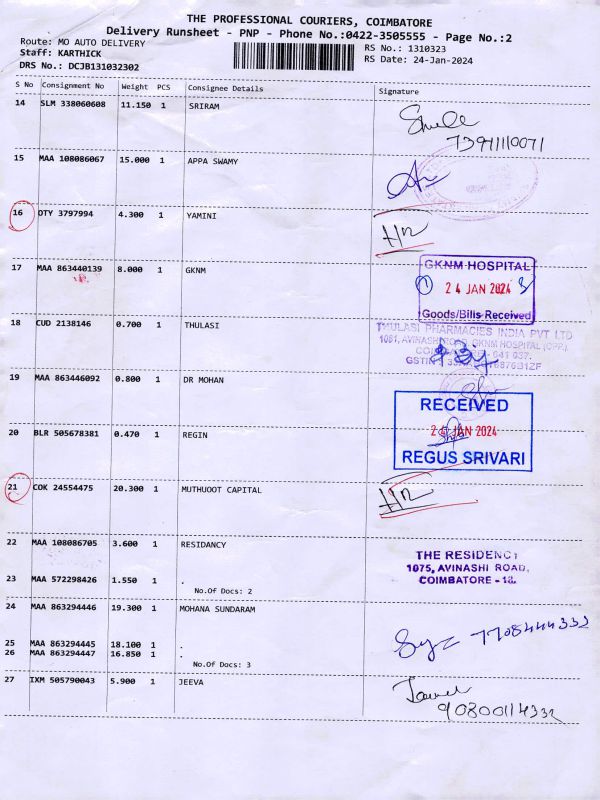 THE PROFESSIONAL COURIERS, COIMBATORE
Delivery Runsheet - PNP - Phone No.:0422-3505555 - Page No.:2
Route: MO AUTO DELIVERY
RS No.: 1310323
Staff: KARTHICK
RS Date: 24-Jan-2024
DRS No.: DCJB131032302
S No Consignment No Weight PCS Consignee Details Signature
14 SLM 338060608 11.150 1 SRIRAM
15 MAA 108086067 15.000 1 APPA SWAMY
16 OTY 3797994 4.300 1 YAMINI
17 MAA 863440139 8.000 1 GKNM
GKNM HOSPITAL
24 JAN 2024
Goods/Bills Received
18 CUD 2138146 0.700 1 THULASI
THULASI PHARMACIES INDIA PVT LTD
1081, AVINASHI ROAD, GKNM HOSPITAL (OPP.)
641 037.
GSTIN
19 MAA 863446092 0.800 1 DR MOHAN
RECEIVED
JAN 2024
REGUS SRIVARI
20 BLR 505678381 0.470 1 REGIN
21 COK 24554475 20.300 1 MUTHUOOT CAPITAL
22 MAA 108086705 3.600 1 RESIDANCY
THE RESIDENCY
1075, AVINASHI ROAD,
COIMBATORE - 18.
23 MAA 572298426 1.550 1 .
No.Of Docs: 2
24 MAA 863294446 19.300 1 MOHANA SUNDARAM
7708444332
25 MAA 863294445 18.100 1 .
26 MAA 863294447 16.850 1 .
No.Of Docs: 3
27 IXM 505790043 5.900 1 JEEVA